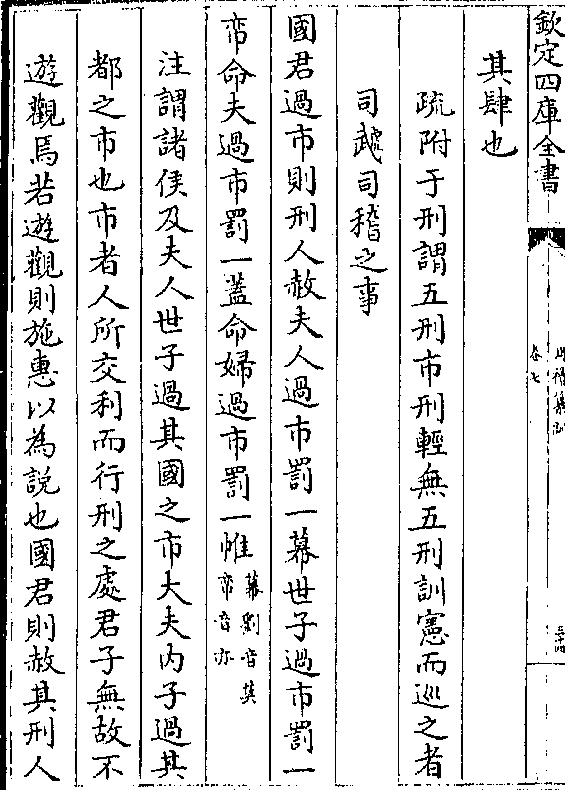 欽定四庫全書
卷七
其肆也
疏附于刑謂五刑市刑輕無五刑訓憲而巡之者
司虣司稽之事
國君過市則刑人赦夫人過市罰一幕世子過市罰一
帟命夫過市罰一蓋命婦過市罰一帷幕劉音莫
帟音亦
注謂諸侯及夫人世子過其國之市大夫內子過其
都之市也市者人所交利而行刑之處君子無故不
遊觀焉若遊觀則施惠以為說也國君則赦其刑人